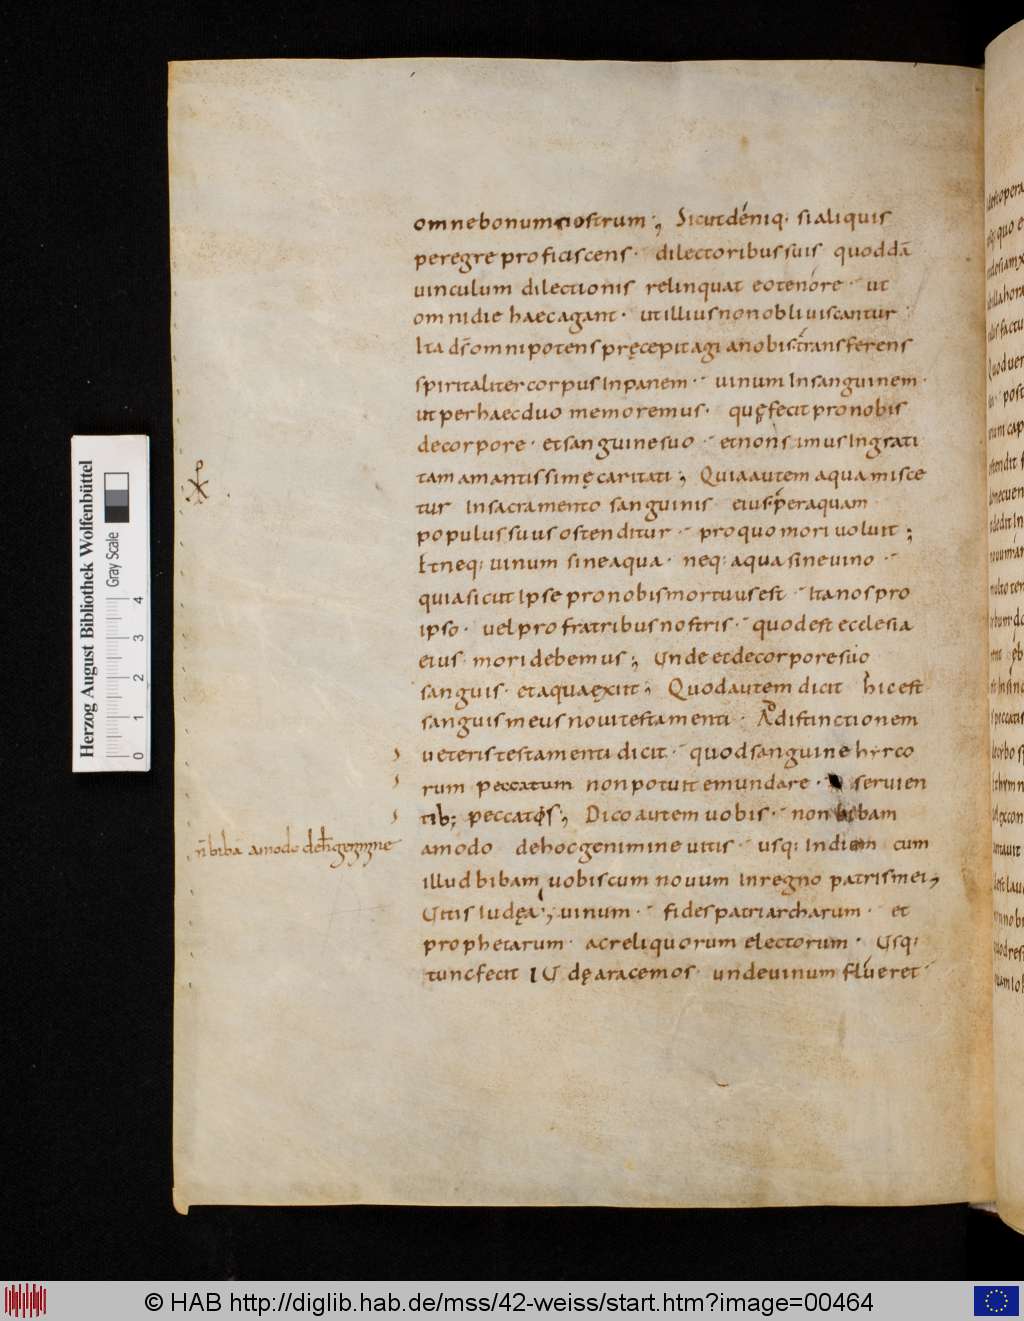 omnebonumnostrum; Sicutdeniq· sialiquis
peregreproficiscens· dilectoribussuis quoddā
uinculum dilectionis relinquat eotenore· ut
omnidie haecagant· utilliusnonobliuiscantur
Ita dsomnipotenspręcepitagi anobis·transferens
spiritalitercorpusInpanem· uinum Insanguinem·
utperhaecduo memoremus· quęfecit pronobis
decorpore· etsanguinesuo· etnonsimusIngrati
tamamantissimę caritati; Quiaautem aquamisce
tur Insacramento sanguinis eiusperaquam
populussuusostenditur· proquomoriuoluit;
Etneq: uinum sineaqua· neq: aquasineuino·
quiasicutIpsepronobismortuusest· Itanospro
ipso· uelprofratribusnostris· quodest ecclesia
eius· moridebemus; Undeetdecorporesuo
sanguis· etaquaęxiit; Quodautem dicit hicest
sanguismeusnouitestamenti· Addistinctionem
ueteristestamenti dicit· quodsanguine hyrco
rum peccatum nonpotuit emundare· seruien
tib; peccatis; Dicoautem uobis· non bibam
amodo dehocgenimine uitis· usq: Indiem cum
illud bibam uobiscum nouum Inregno patrismei;
ñ bibā amodo
Uitis Iudęa; uinum· fidespatriarcharum· et
prophetarum· acreliquorum electorum· Usq:
tuncfecit IUdęaracemos· undeuinum flueret
Herzog August Bibliothek Wolfenbüttel
Gray Scale
0 1 2 3 4
© HAB http://diglib.hab.de/mss/42-weiss/start.htm?image=00464